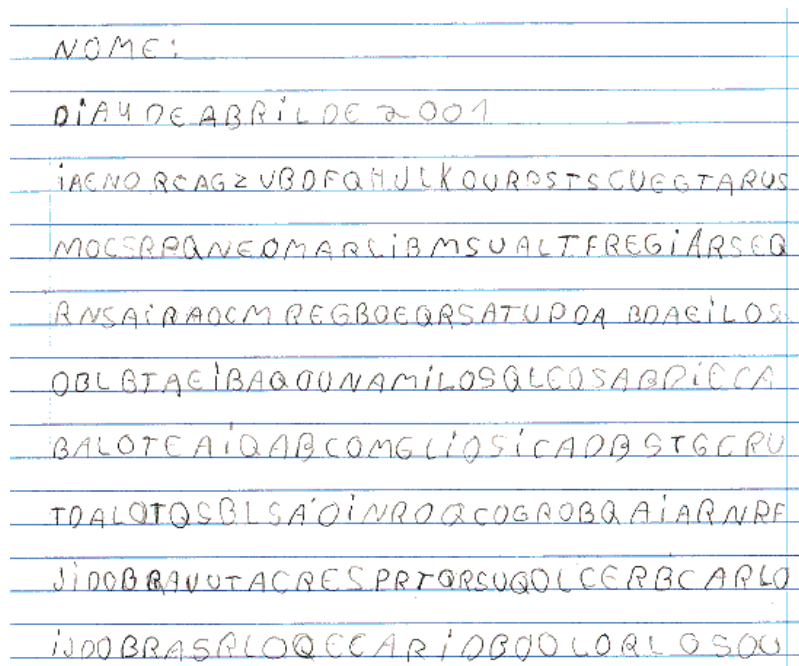 NOME:
DiA 4 DE ABRiL DE 2001
iAENO RCAGZ VBDFQHJLKOURPSTSCUEGTARUS
MOCSRPQNEOMARLiBMSUALTFREGiARSEQ
RNSAiRAOCM REGBOEQRSATUPOA BDAEiLOS
OBLBTAEiBAQOUNAMiLOSQLEOSABRiECA
BALOTEAiQABCOMGLiOSiCADBSTGCRU
TDALOTQSBLSA'OiNROQCOGROBQAiARNRF
JiDOBRAVUTACRESPRTQRSUQOLCERBCARLO
iJDOBRASRLOQECARiDBOOLORLOSOU